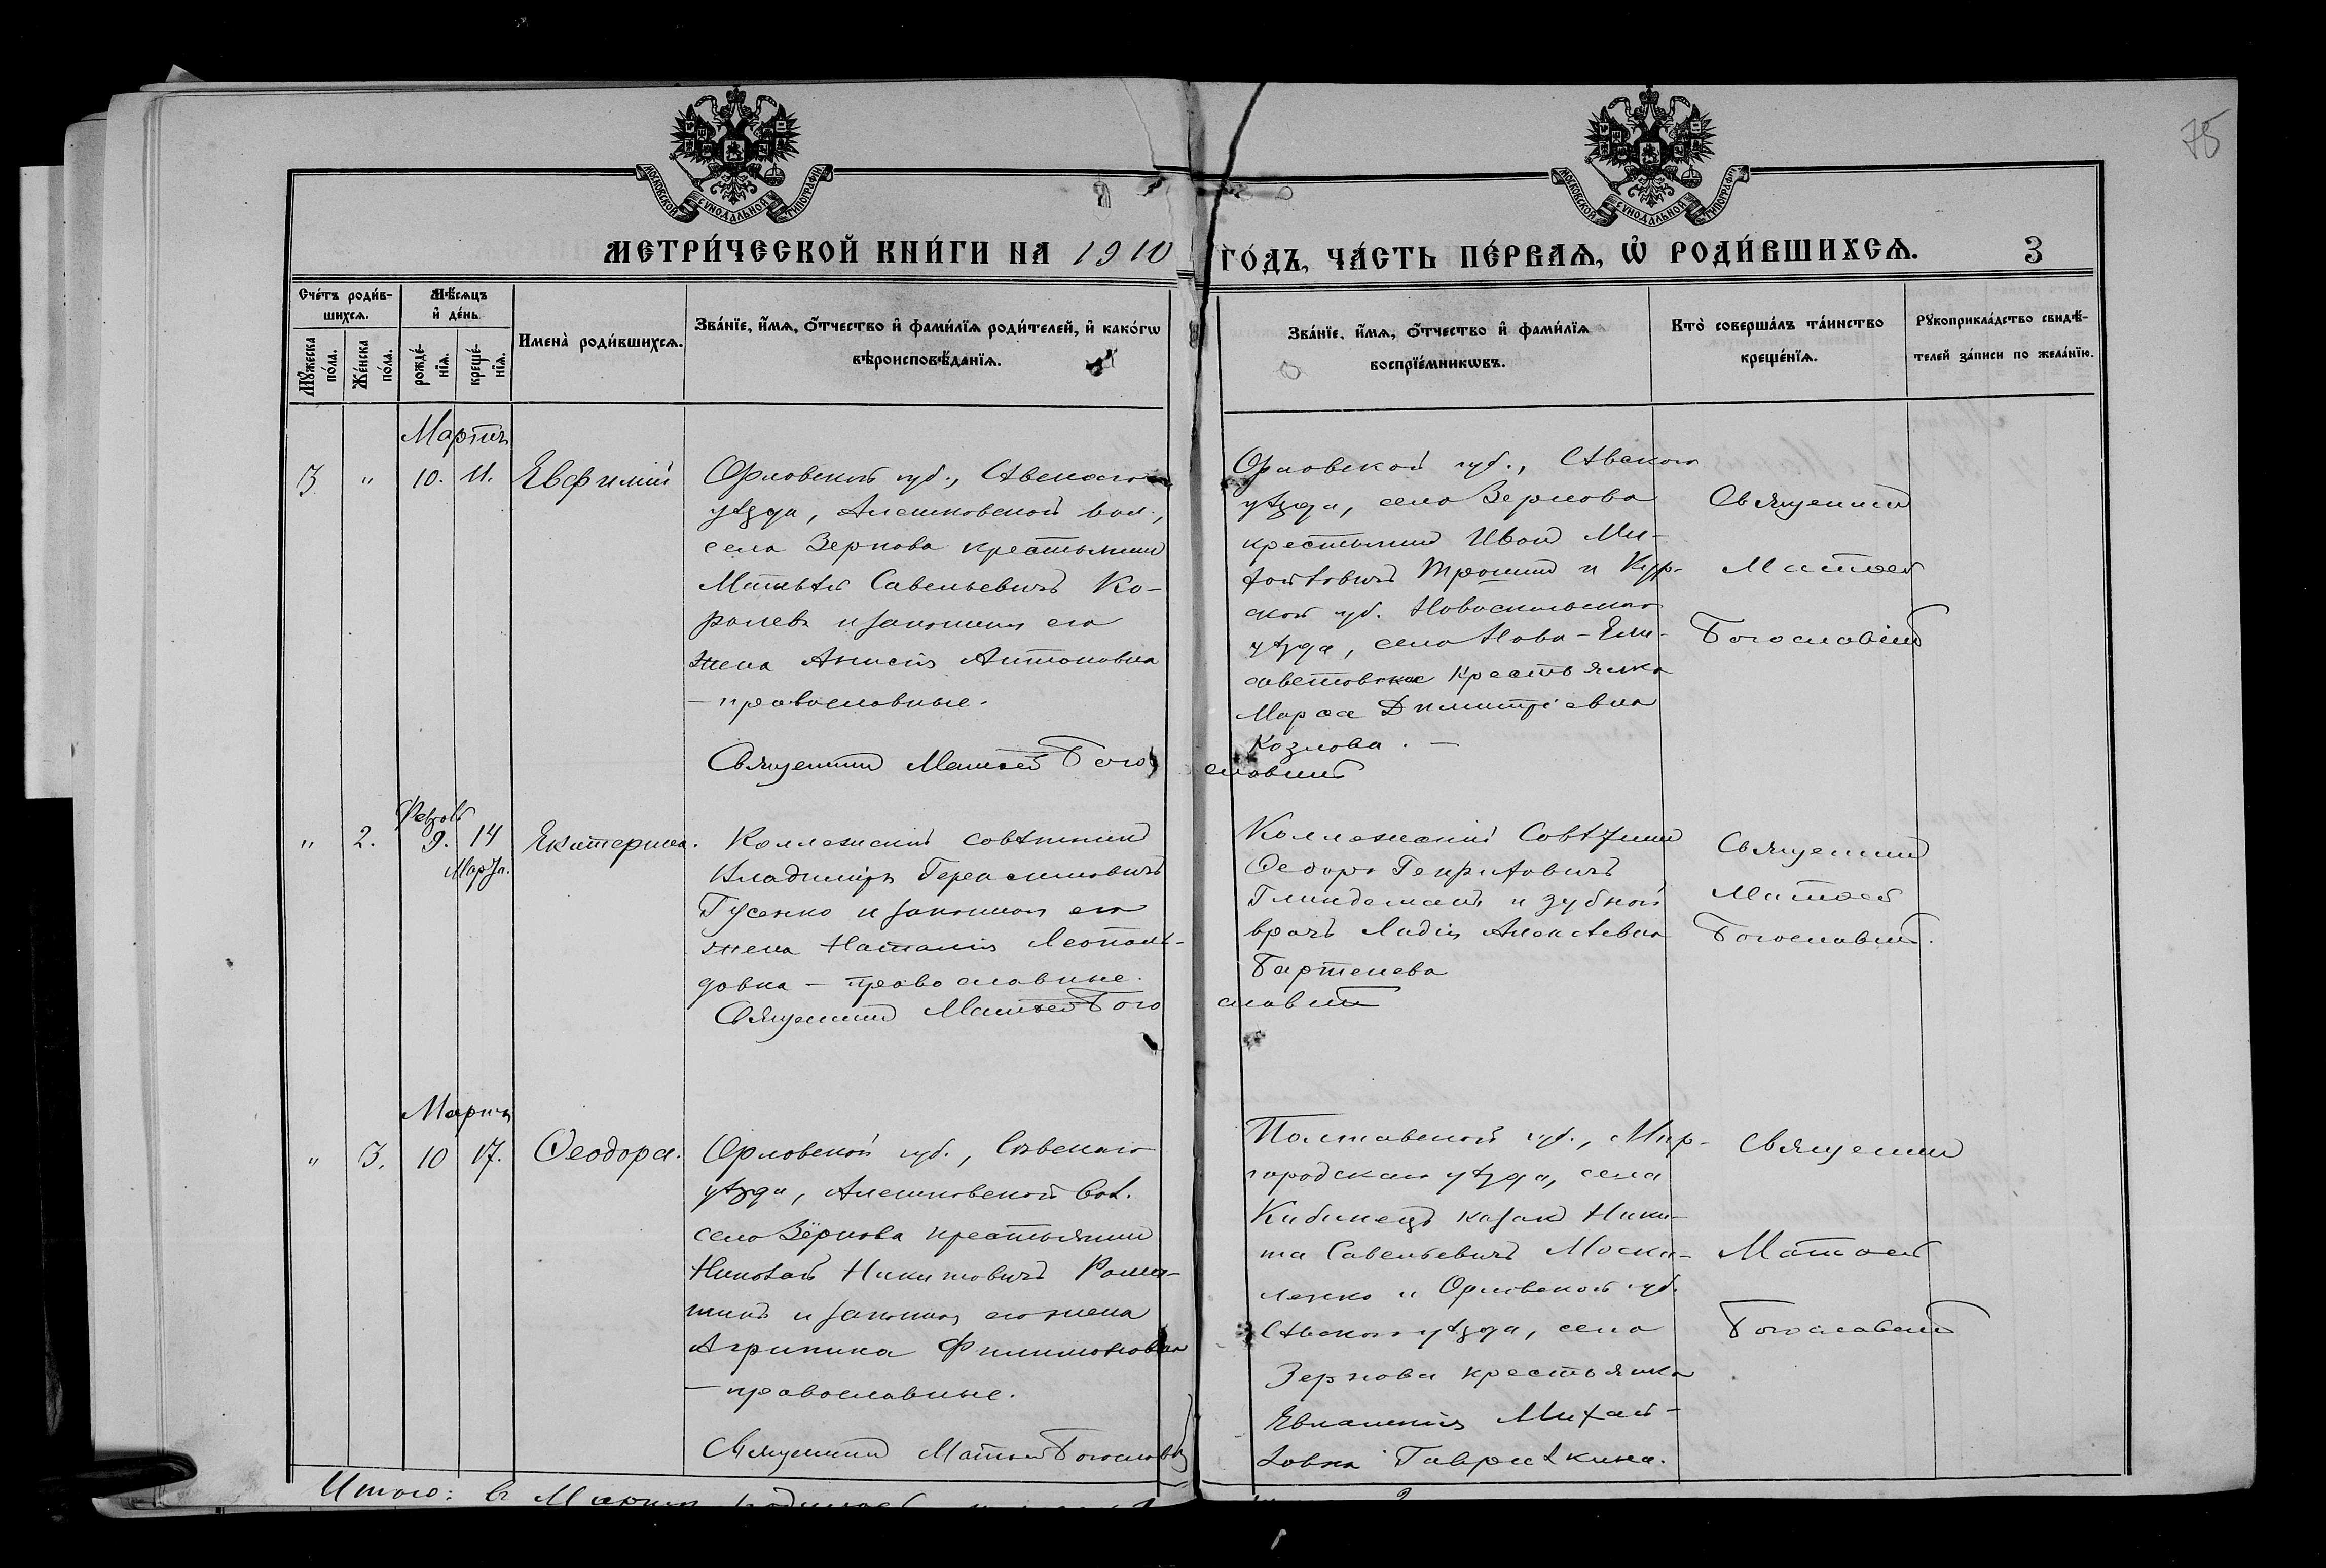 75
МОСКОВСКОЙ СѴНОДАЛЬНОЙ ТИПОГРАФІИ
МОСКОВСКОЙ СѴНОДАЛЬНОЙ ТИПОГРАФІИ
МЕТРИ́ЧЕСКОЙ КНИ́ГИ НА 1910 ГО́ДЪ, ЧА́СТЬ ПЕ́РВАѦ, Ѡ҆ РОДИ́ВШИХСѦ. 3
Сче́тъ роди́в-
шихсѧ.
Мꙋ́жеска
по́ла.
Же́нска
по́ла.
Мѣ́сѧцъ
и҆ де́нь
рожде́-
нїѧ.
креще́-
нїѧ.
Имена̀ роди́вшихсѧ.
Зва́нїе, и҆́мѧ, ѻ҆́тчество и҆ фами́лїѧ роди́телей, и҆ како́гѡ
вѣроисповѣ́данїѧ.
Зва́нїе, и҆́мѧ, ѻ҆́тчество и҆ фами́лїѧ
воспрїе́мникѡвъ.
Кто̀ соверша́лъ та́инство
креще́нїѧ.
Рꙋкоприкла́дство свидѣ́-
телей за́писи по жела́нїю.
Мартъ
3 " 10. 11. Евфимій
Орловской губ., Сѣвскаго
уѣзда, Алешковской вол.,
села Зернова крестьянинъ
Матвѣй Савельевичъ Ко-
ролевъ и законная его
жена Анисія Антоновна
— православные.
Священникъ Матѳей Бого
словскій
Орловской губ., Сѣвскаго
уѣзда, села Зернова
крестьянинъ Иванъ Ми-
хайловичъ Трошинъ и Кур-
ской губ. Новоскольскаго
уѣзда, села Ново-Ели-
саветовка крестьянка
Марѳа Димитріевна
Козлова. —
Священникъ
Матѳей
Богословскій
" 2. Февраль 9. 14 Марта. Екатерина.
Коллежскій совѣтникъ
Владиміръ Герасимовичъ
Гусенко и законная его
жена Наталія Леополь-
довна — православные.
Священникъ Матѳей Бого
словскій
Коллежскій Совѣтникъ
Ѳедоръ Генриховичъ
Глиндеманъ и зубной
врачъ Лидія Алексѣевна
Бартенева
Священникъ
Матѳей
Богословскій.
Мартъ
" 3. 10 17. Ѳеодора.
Орловской губ., Сѣвскаго
уѣзда, Алешковской вол.
села Зернова крестьянинъ
Николай Никитовичъ
и законная его жена
Агрипина Филимоновна
— православные.
Священникъ Матѳей Богословскій
Полтавской губ., Мир-
городскаго уѣзда, села
Кибинецъ казакъ Ники-
та Савельевичъ Моска-
ленко и Орловской губ.
Сѣвскаго уѣзда, села
Зернова крестьянка
Евлампія Михай-
ловна Гаврилкина.
Священникъ
Матѳей
Богословскій
Итого: въ Мартѣ родилось